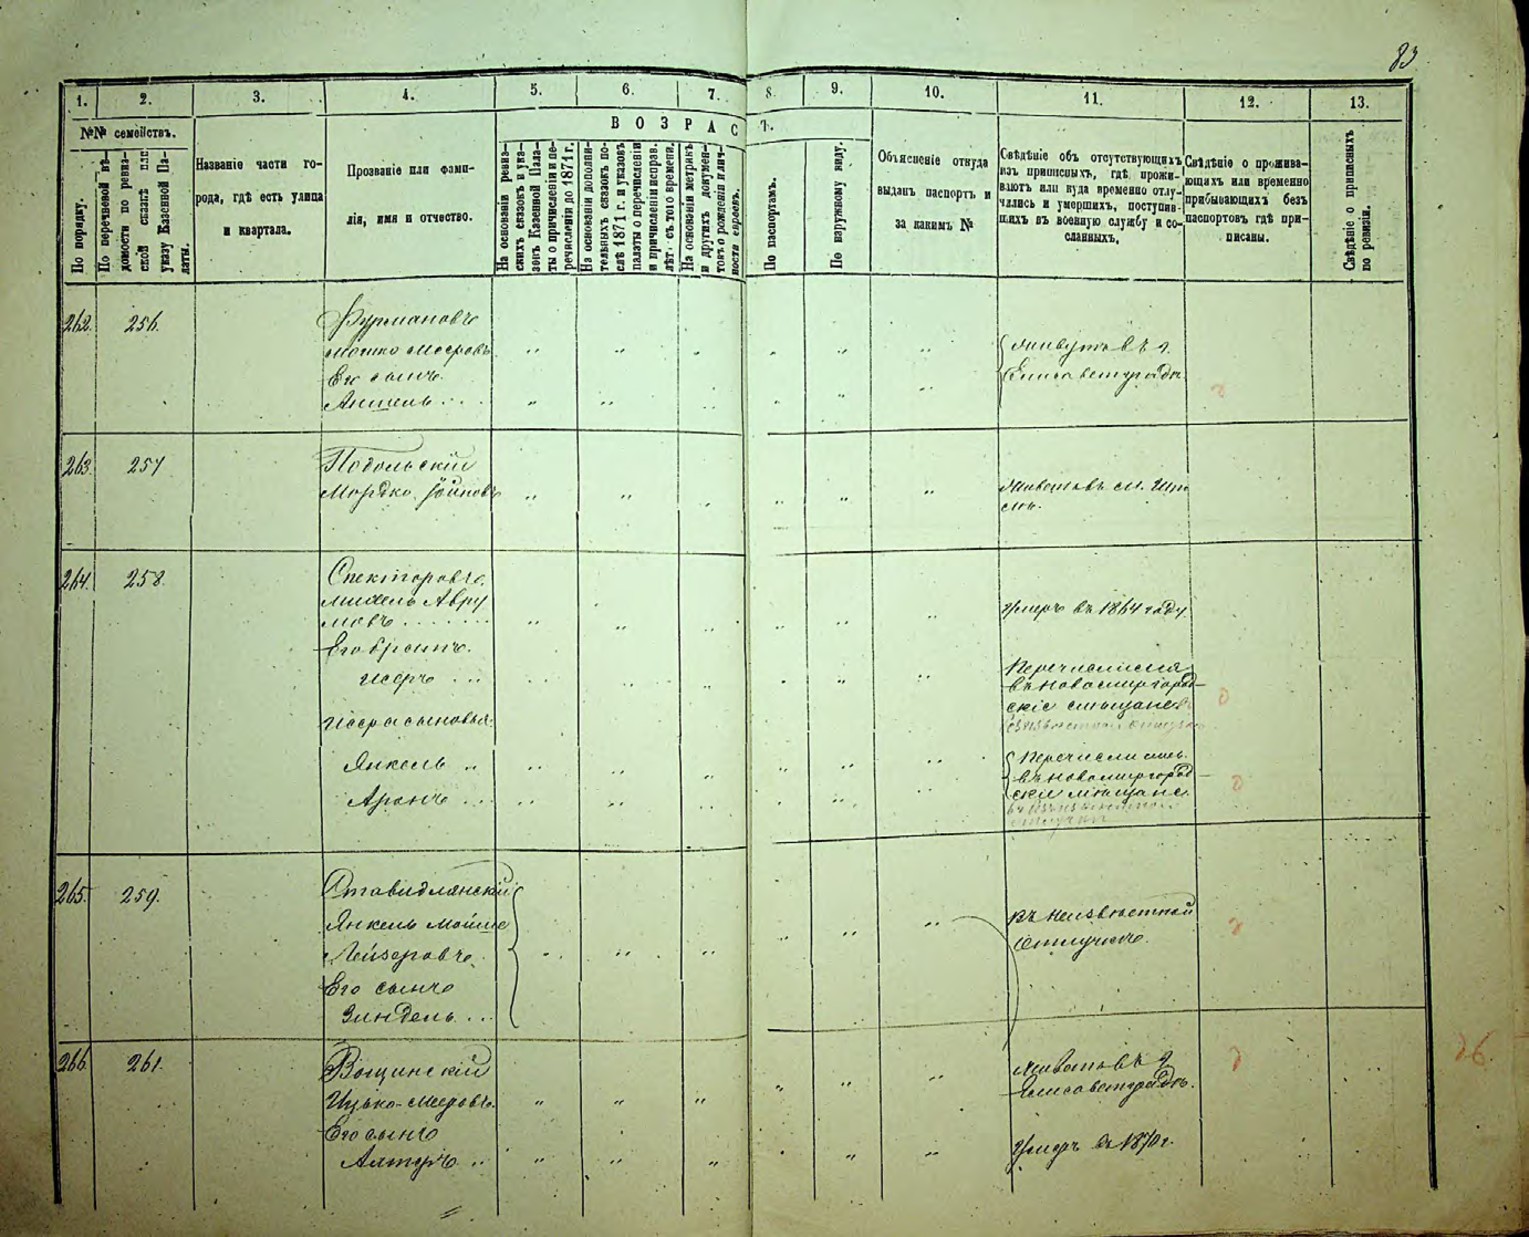 83
1. 2. 3. 4. 5. 6. 7. 8. 9. 10. 11. 12. 13.
№№ семействъ.
ВОЗРАСТ.
По порядку.
По перечневой вѣ-
домости по ревиз-
ской сказкѣ или
указу Казенной Па-
латы.
Названіе части го-
рода, гдѣ есть улица
и квартала.
Прозваніе или фами-
лія, имя и отчество.
На основаніи ревиз-
скихъ сказокъ и ука-
зовъ Казенной Пала-
ты о причисленіи и пе-
речисленіи до 1871 г.
На основаніи дополни-
тельныхъ сказокъ по-
слѣ 1871 г. и указовъ
палаты о перечисленіи
и причисленіи исправ.
лѣтъ съ того времени.
На основаніи метрикъ
и другихъ докумен-
товъ о рожденіи и лич-
ности евреевъ.
По паспортамъ.
По наружному виду.
Объясненіе откуда
выданъ паспортъ и
за какимъ №
Свѣдѣніе объ отсутствующихъ
изъ приписныхъ, гдѣ прожи-
ваютъ или куда временно отлу-
чались и умершихъ, поступив-
шихъ въ военную службу и со-
сланныхъ.
Свѣдѣніе о прожива-
ющихъ или временно
прибывающихъ безъ
паспортовъ гдѣ при-
писаны.
Свѣдѣніе о приписныхъ
по ревизіи.
262. 256.
Фурмановъ
Мошко Мееровъ
Его сынъ
Аншель
Живутъ въ г.
Елисаветградѣ.
263. 257
Подольскій
Мордко
Живетъ въ м.
264. 258
Спекторовъ
Михель Авру
мовъ
Его братъ
Исеръ
Исера сыновья
Янкель
Аронъ
Умеръ въ 1864 году.
Перечислился
въ новомиргород-
скіе мѣщане
Перечислились
въ новомиргород-
скіе мѣщане.
265. 259.
Ставидлянскій
Янкель Мойше
Лейзеровъ
Его сынъ
Зиндель
Въ неизвѣстной
отлучкѣ.
266. 261.
Вощинскій
Ицько-Мееровъ.
Его сынъ
Алтеръ
Живетъ въ г.
Елисаветградѣ.
Умеръ въ 1870 г.
26.